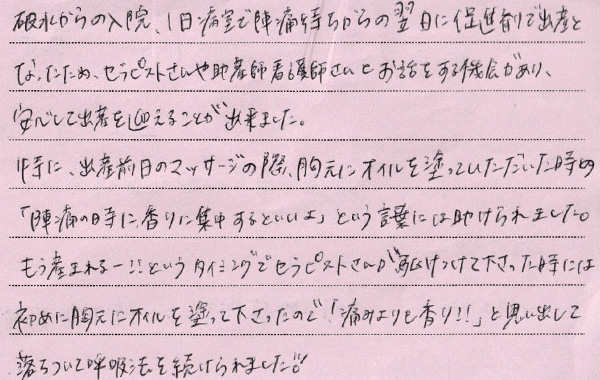 破水からの入院、1日病室で陣痛待ちからの翌日に促進剤で出産と
なったため、セラピストさんや助産師看護師さんとお話をする機会があり、
安心して出産を迎えることが出来ました。
特に、出産前日のマッサージの際、胸元にオイルを塗っていただいた時の
「陣痛の時に香りに集中するといいよ」という言葉には助けられました。
もう産まれるー!!というタイミングでセラピストさんが駆けつけて下さった時には
初めに胸元にオイルを塗って下さったので「痛みよりも香り!!」と思い出して
落ちついて呼吸法を続けられました!!